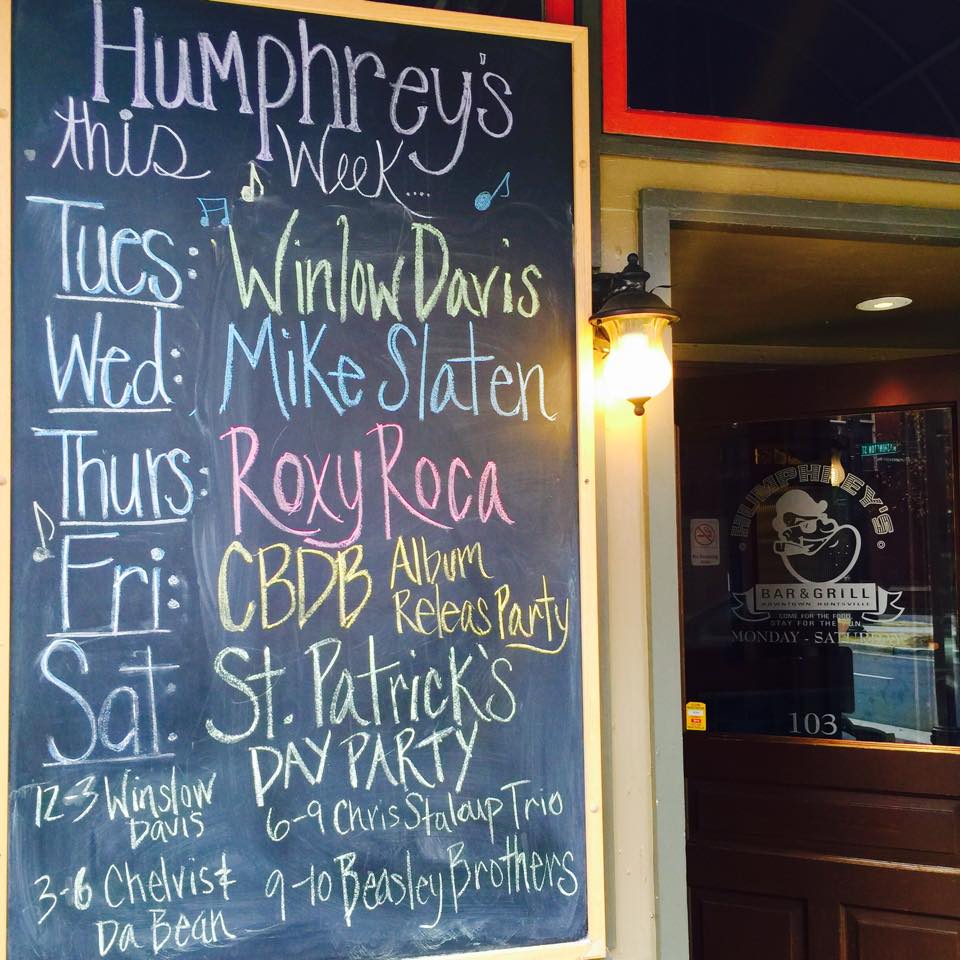 Humphrey's
this Week....
Tues: Winlow Davis
Wed: Mike Slaten
Thurs: Roxy Roca
Fri: CBDB Album
Releas Party
Sat: St. Patrick's
DAY PARTY
12-3 Winslow
Davis
3-6 Chelvis &
Da Bean
6-9 Chris Staloup Trio
9-10 Beasley Brothers
HUMPHREY'S
BAR & GRILL
DOWNTOWN HUNTSVILLE
COME FOR THE FOOD
STAY FOR THE FUN
MONDAY - SATURDAY
103